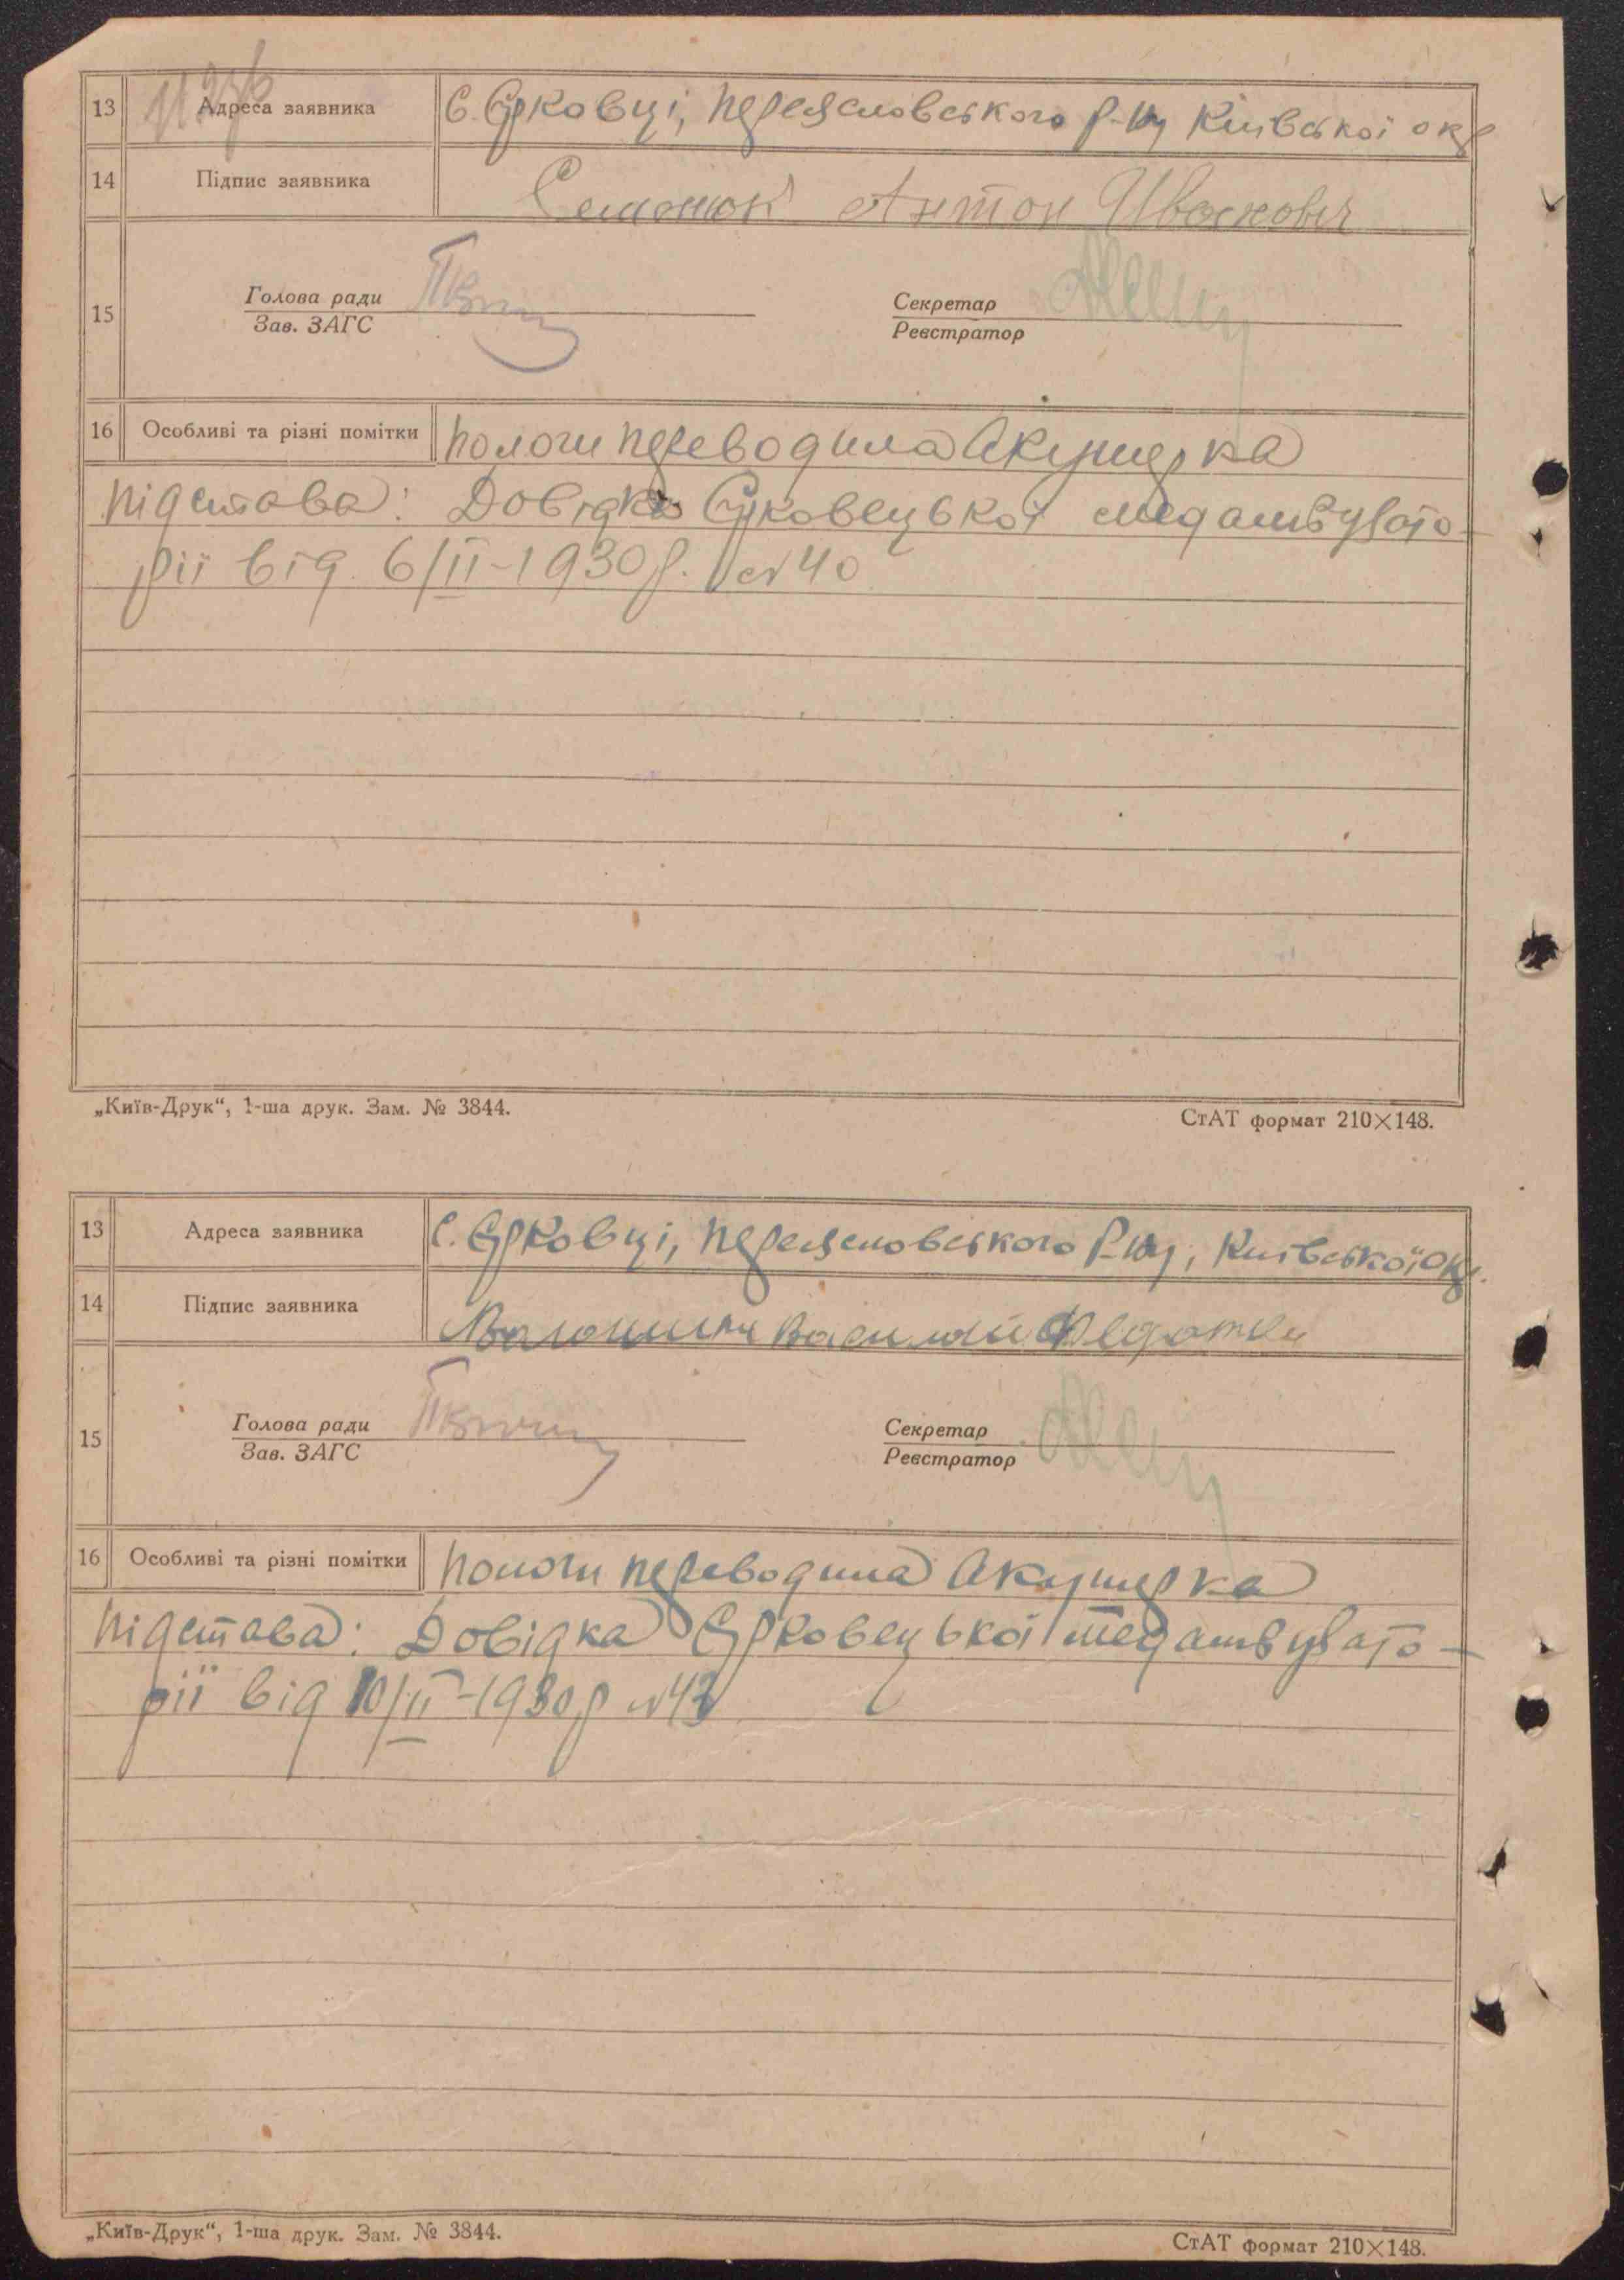 13 Адреса заявника с. Єрковці, Переяславського р-ну Київської окр
14 Підпис заявника Семенюк Антон Иванович
Голова ради Секретар
15
Зав. ЗАГС Реєстратор
16 Особливі та різні помітки Пологи переводила Акушерка
Підстава: Довідка Єрковецької медамбулато-
рії від 6/II-1930р. №40
„Київ-Друк“, 1-ша друк. Зам. № 3844. СтАТ формат 210×148.
13 Адреса заявника с. Єрковці, Переяславського р-ну, Київської окр.
14 Підпис заявника Василий
Голова ради Секретар
15
Зав. ЗАГС Реєстратор
16 Особливі та різні помітки Пологи переводила Акушерка
Підстава: Довідка Єрковецької медамбулато-
рії від 10/II-1930р №
„Київ-Друк“, 1-ша друк. Зам. № 3844. СтАТ формат 210×148.